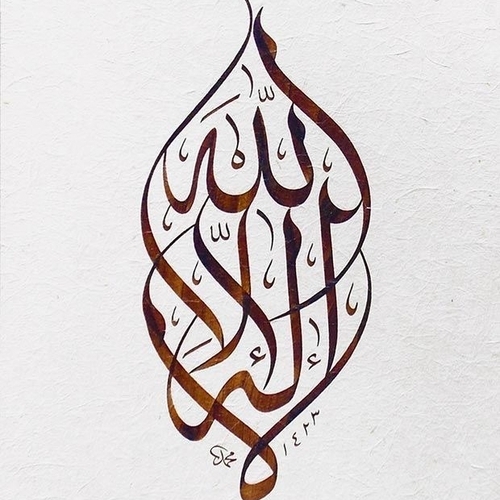 لا إله إلا الله
محمد
١٤٢٣